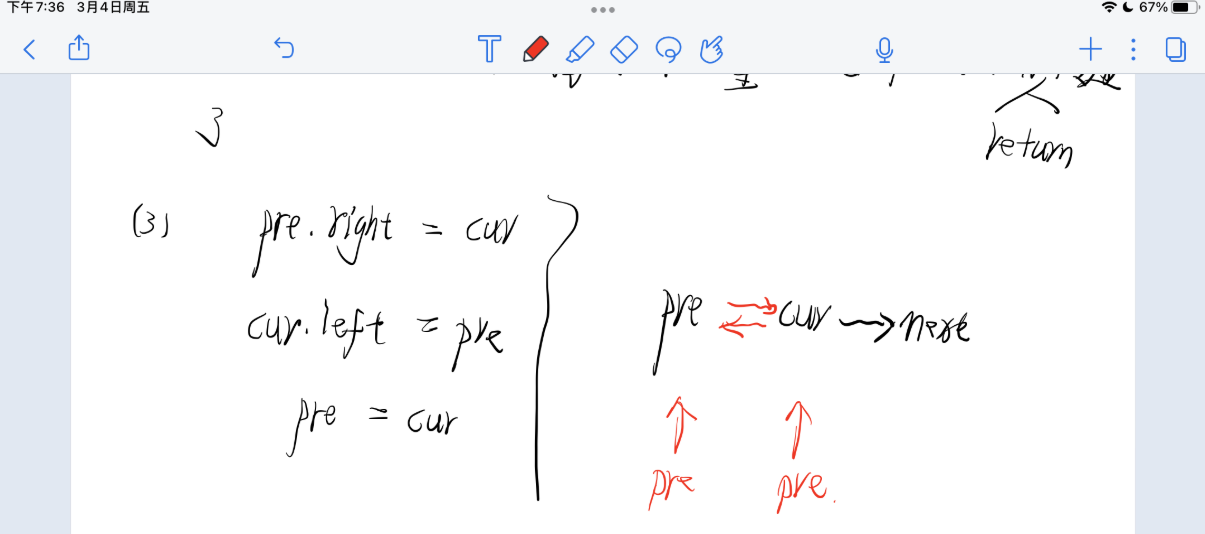 下午7:36 3月4日周五
67%
return
(3) pre.right = cur
cur.left = pre
pre = cur
pre cur next
pre pre.